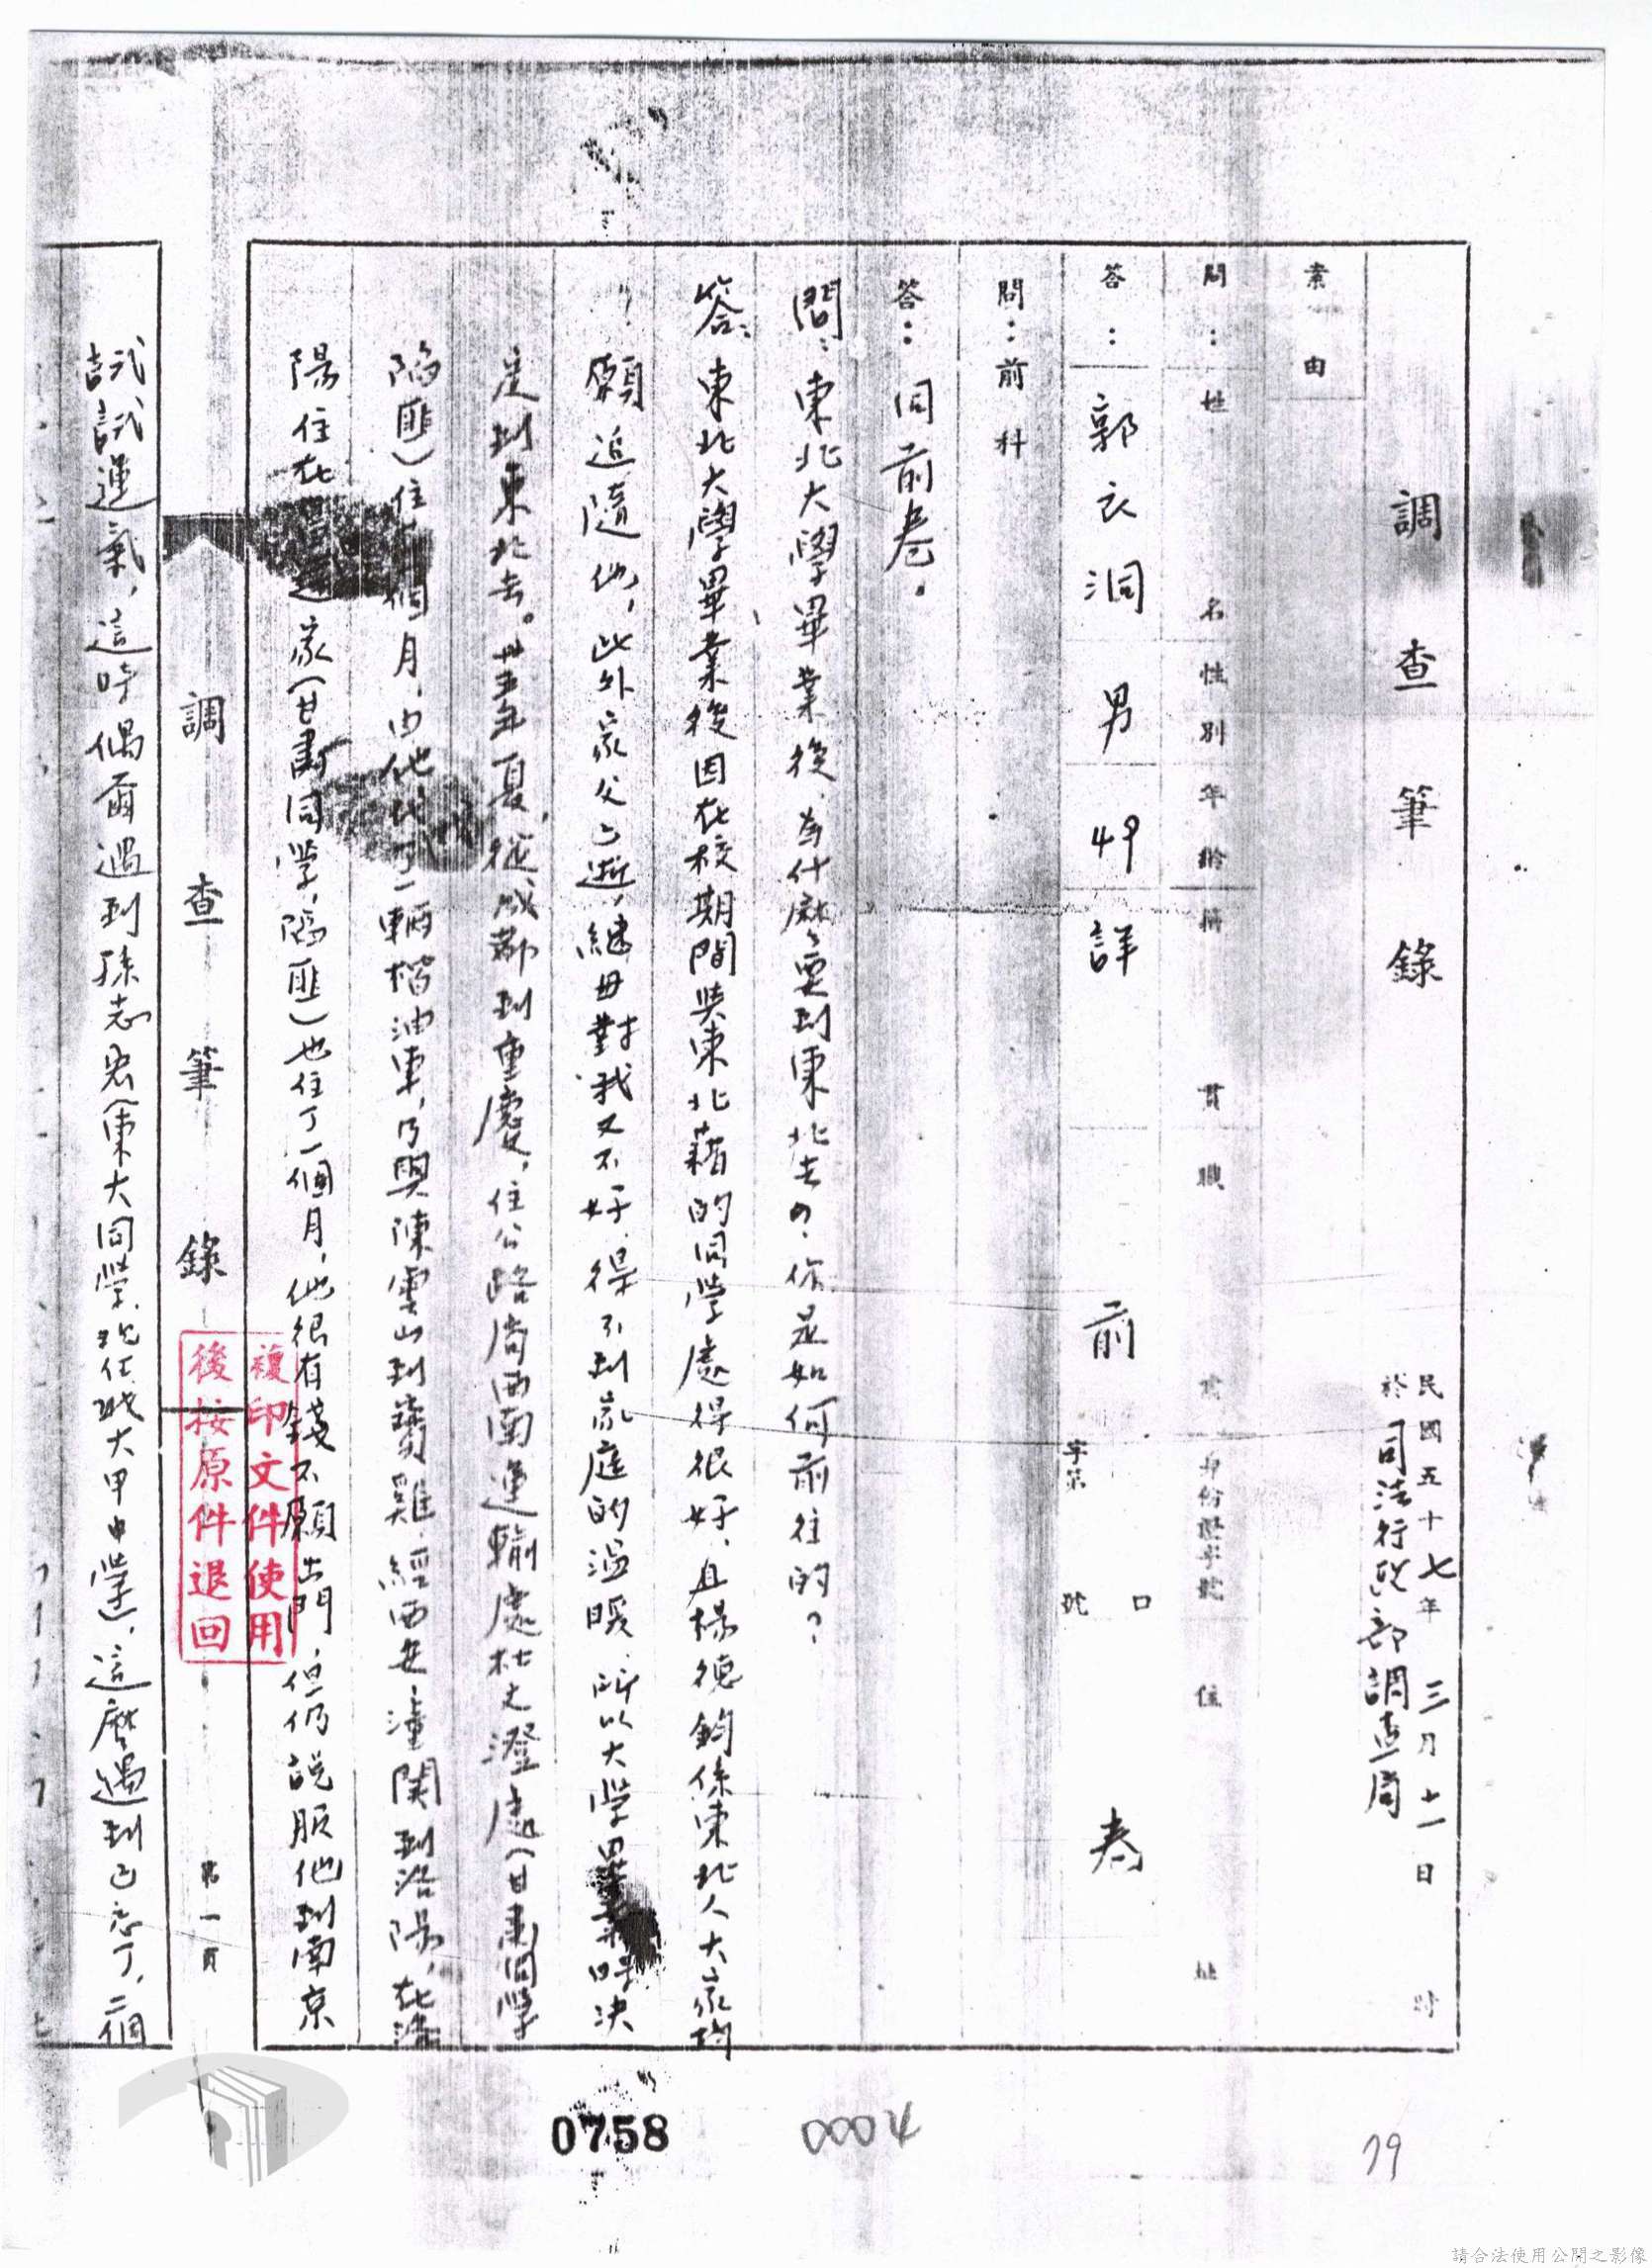 調查筆錄
民國五十七年三月十一日 時
於司法行政部調查局
案由
問：姓名 性別 年齡 籍貫 職 身份證字號 住址
答：郭衣洞 男 49 詳前卷
字第 號
口
問：前科
答：同前卷。
問：東北大學畢業後，為什麼要到東北去的，你是如何前往的？
答：東北大學畢業後因在校期間與東北藉的同學處得很好，且楊德鈞係東北人大家均
願追隨他，此外家父亡逝，繼母對我又不好，得不到家庭的溫暖，所以大學畢業時決
定到東北去。卅五年夏，從成都到重慶，住公路局西南運輸處杜文澄處（甘肅同學
陷匪）住 個月，由他找了一輛楷油車，乃與陳雲山到寶雞，經西安、潼關到洛陽，在洛
陽住在 家（甘肅同學，陷匪）也住了一個月，他很有錢不願出門，但仍說服他到南京
調查筆錄
第一頁
複印文件使用
後按原件退回
試試運氣，這時偶爾遇到孫志 （東大同學，現任職大甲中學），這麼遇到已忘了，二個
0758
0004
79
請合法使用公開之影像